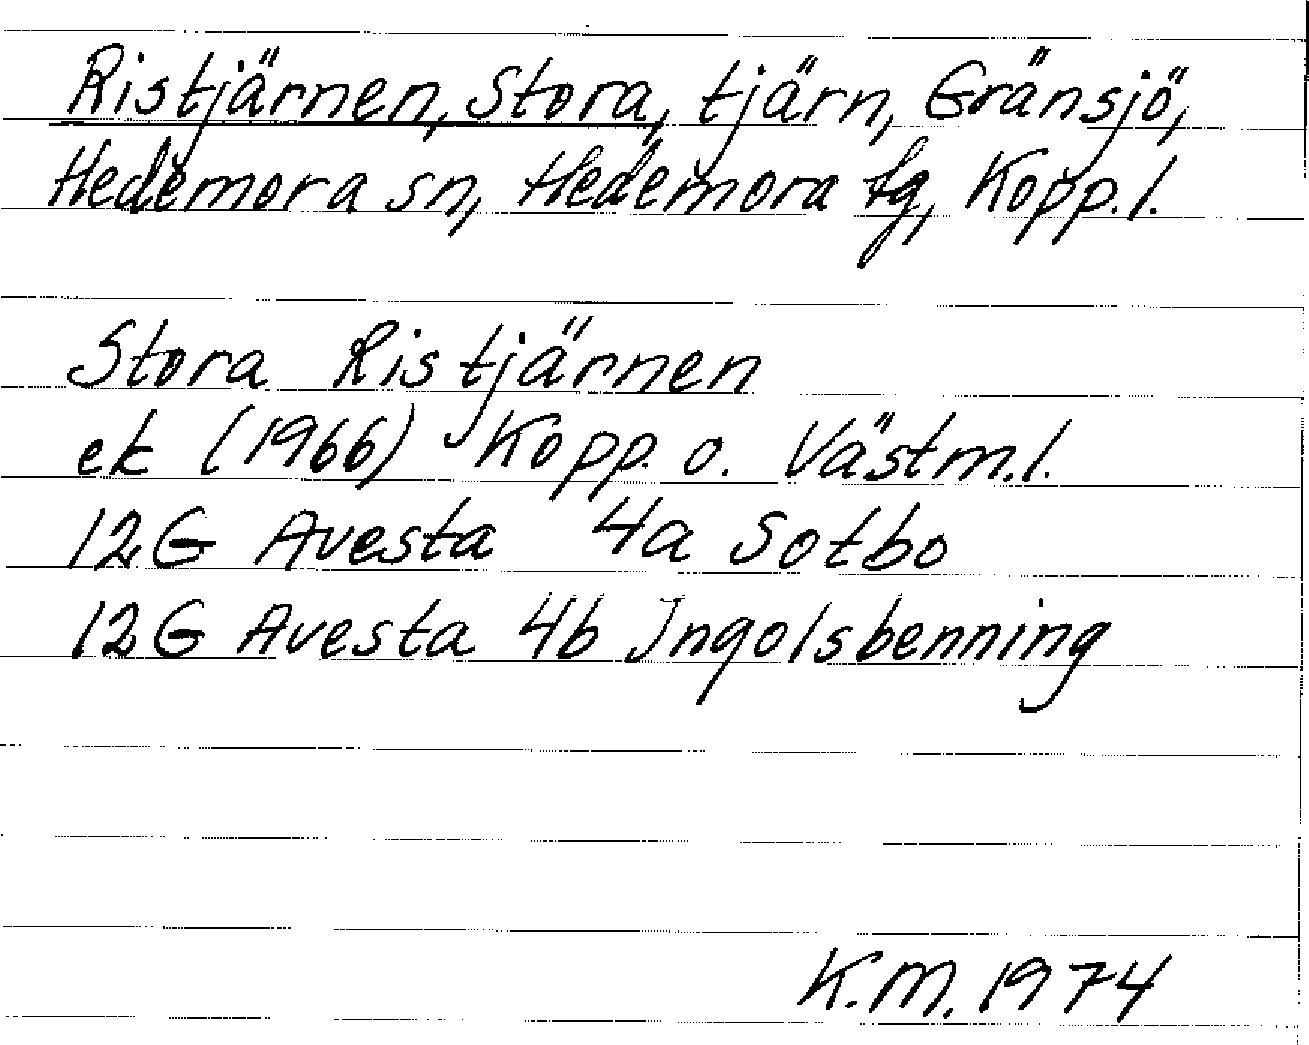 Ristjärnen, Stora, tjärn, Gränsjö,
Hedemora sn, Hedemora tg, Kopp. l.
Stora Ristjärnen
ek (1966) Kopp. o. Västm. l.
12G Avesta 4a Sotbo
12G Avesta 4b Ingolsbenning
K.M. 1974